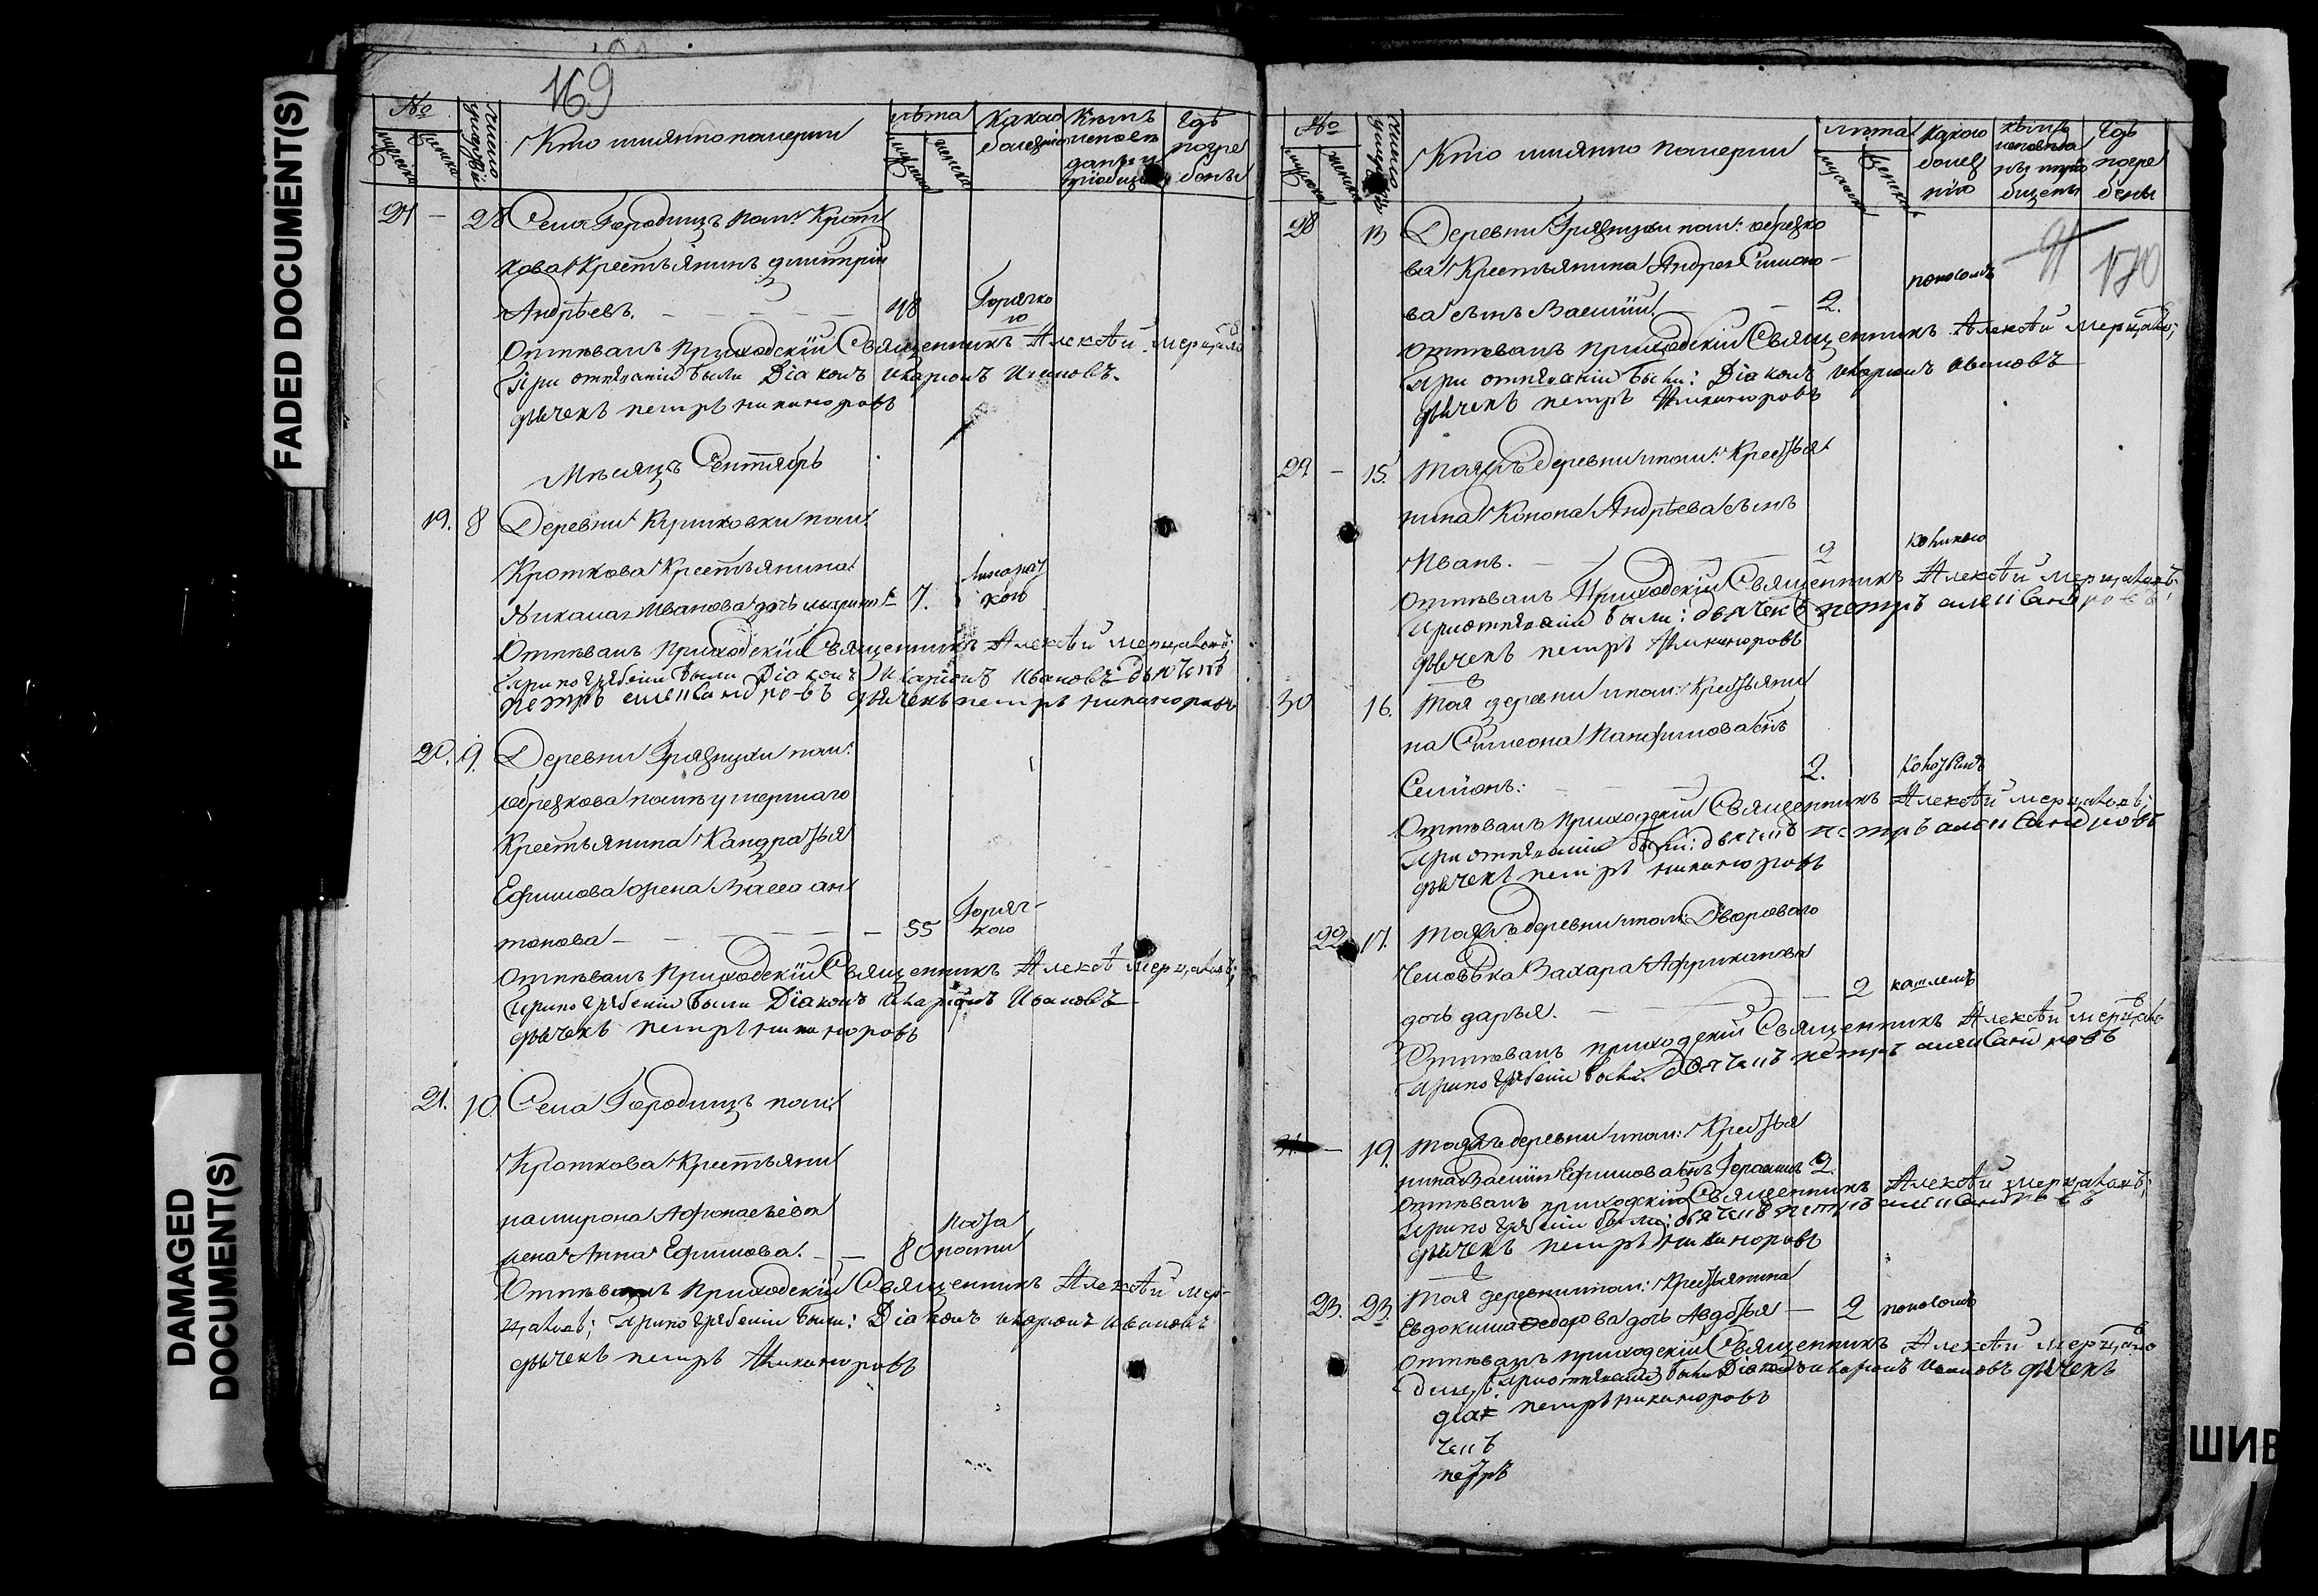 FADED DOCUMENT(S)
DAMAGED
DOCUMENT(S)
169
№ Число умерш Кто имянно померли лѣта Какою болезнію Кѣмъ исповеданы и приобщены Гдѣ погребены
мужска женска мужска женска
27 — 28 Села Городищъ пом: Крот
кова Крестьянинъ дмитрій
Андрѣевъ. — 48 Горячко
ю
Отпѣвалъ Приходскій Священникъ Алексѣй Мерцало
При отпѣваніи были Діаконъ Иларіонъ Ивановъ.
дьячекъ петръ никаноровъ
Мѣсяцъ Сентябрь
19. 8 Деревни Куликовки пом:
Кроткова Крестьянина
Никалая Иванова дочь марина — 7. Лихорат
кою
Отпѣвалъ Приходскій Священникъ Алексѣй Мерцаловъ;
При погрѣбеніи были Діаконъ Иларіонъ Ивановъ дьячекъ
петръ александровъ дьячекъ петръ никаноровъ
20. 9. Деревни Грязнухи пом:
обрезкова помъ умершаго
Крестьянина Кандратья
Ефимова жена Васса ан
тонова — 55 Горяч-
кою
Отпѣвалъ Приходскій Священникъ Алексѣй Мерцаловъ;
При погрѣбеніи были Діаконъ Иларіонъ Ивановъ
дьячекъ петръ никаноровъ
21. 10 Села Городищъ пом:
Кроткова Крестьяни
на мирона Афонасьева
жена Анна Ефимова. — 80 старости
Отпѣвалъ Приходскій Священникъ Алексѣй Мер-
цаловъ; При погрѣбеніи были: Діаконъ Иларіонъ Ивановъ
дьячекъ петръ Никаноровъ
№ Число умерш Кто имянно померли лѣта Какою болезнію кѣмъ исповѣданы и приобщены Гдѣ погребены
мужска женска мужска женска
170
28 13 Деревни Грязнухи пом: обрезко
ва Крестьянина Андрея Симоно-
ва сынъ Василій. — 2. поносомъ
Отпѣвалъ Приходскій Священникъ Алексѣй Мерцаловъ;
При отпѣваніи были: Діаконъ Иларіонъ Ивановъ
дьячекъ петръ Никаноровъ
29 — 15. Тояжъ деревни и пом: Крестья
нина Конона Андрѣева сынъ
Иванъ. — 2
Отпѣвалъ Приходскій Священникъ Алексѣй Мерцаловъ;
При отпѣваніи были: дьячекъ петръ александровъ;
дьячекъ петръ Никаноровъ
30 16. Тоя деревни и пом: Крестьяни
на Симеона Панфилова сынъ
Семіонъ: — 2.
Отпѣвалъ приходскій Священникъ Алексѣй Мерцаловъ;
При отпѣваніи были: дьячекъ петръ александровъ
дьячекъ петръ никаноровъ
22 17. Тояжъ деревни и пом: Двороваго
Человѣка Захара Африканова
дочь дарья. — 2 кашлемъ
Отпѣвалъ приходскій Священникъ Алексѣй Мерцало
При погрѣбеніи были: Дьячекъ петръ александровъ
31 — 19. Тояжъ деревни и пом: Крестья
нина Василія Ефимова сынъ Герасимъ 2.
Отпѣвалъ приходскій Священникъ Алексѣй Мерцаловъ;
При погрѣбеніи были: дьячекъ петръ александровъ
дьячекъ петръ никаноровъ
23. 23. Тоя деревни и пом: Крестьянина
Евдокима Федорова дочь Авдотья — 2 поносомъ
Отпѣвалъ приходскій Священникъ Алексѣй Мерцало
При отпѣваніи были Діаконъ Иларіонъ Ивановъ дьячекъ
петръ никаноровъ
чекъ
петръ
ШИВ